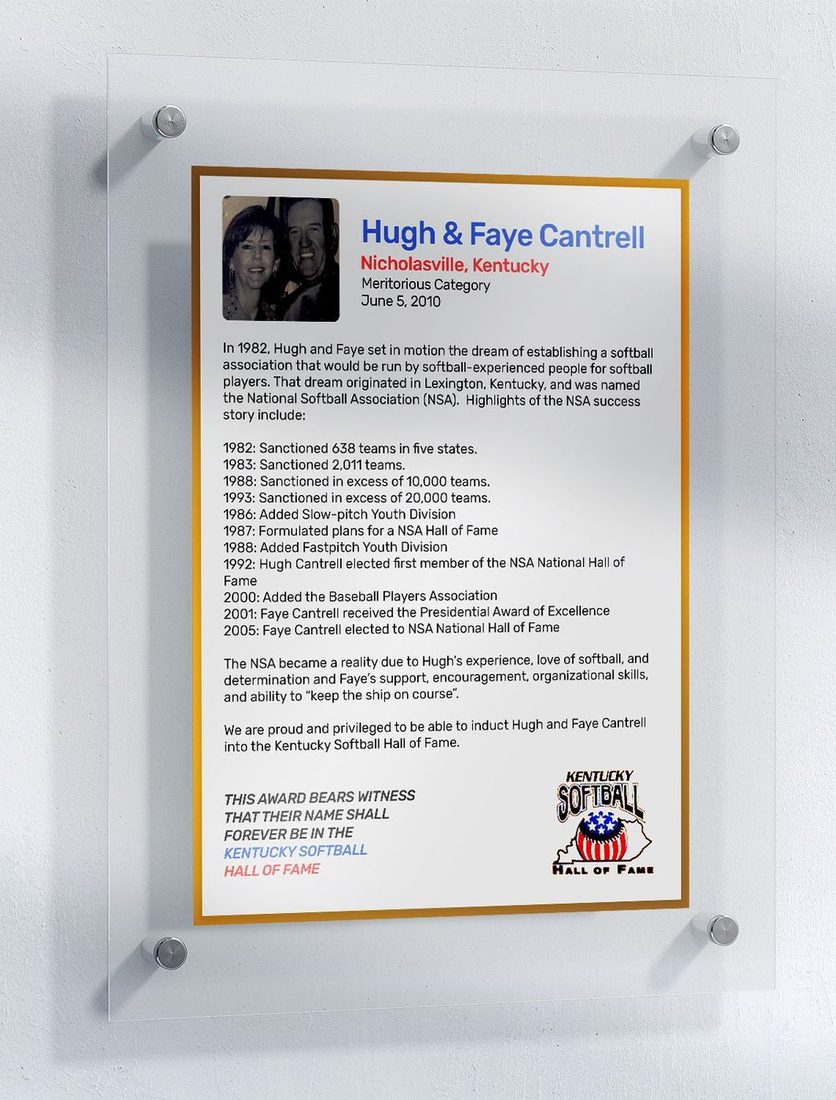 Hugh & Faye Cantrell
Nicholasville, Kentucky
Meritorious Category
June 5, 2010
In 1982, Hugh and Faye set in motion the dream of establishing a softball
association that would be run by softball-experienced people for softball
players. That dream originated in Lexington, Kentucky, and was named
the National Softball Association (NSA).  Highlights of the NSA success
story include:
1982: Sanctioned 638 teams in five states.
1983: Sanctioned 2,011 teams.
1988: Sanctioned in excess of 10,000 teams.
1993: Sanctioned in excess of 20,000 teams.
1986: Added Slow-pitch Youth Division
1987: Formulated plans for a NSA Hall of Fame
1988: Added Fastpitch Youth Division
1992: Hugh Cantrell elected first member of the NSA National Hall of
Fame
2000: Added the Baseball Players Association
2001: Faye Cantrell received the Presidential Award of Excellence
2005: Faye Cantrell elected to NSA National Hall of Fame
The NSA became a reality due to Hugh's experience, love of softball, and
determination and Faye's support, encouragement, organizational skills,
and ability to “keep the ship on course”.
We are proud and privileged to be able to induct Hugh and Faye Cantrell
into the Kentucky Softball Hall of Fame.
THIS AWARD BEARS WITNESS
THAT THEIR NAME SHALL
FOREVER BE IN THE
KENTUCKY SOFTBALL
HALL OF FAME
KENTUCKY
SOFTBALL
HALL OF FAME